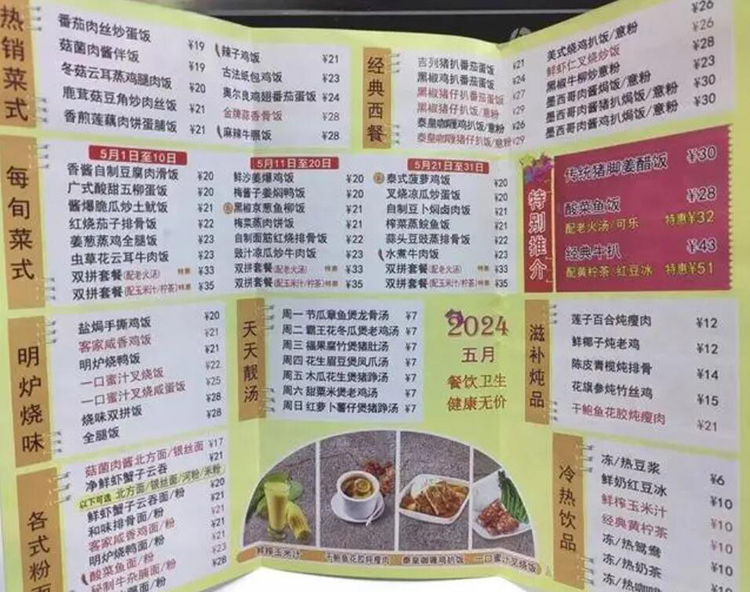 热销菜式
番茄肉丝炒蛋饭 ¥19
菇菌肉酱伴饭 ¥19
冬菇云耳蒸鸡腿肉饭 ¥20
鹿茸菇豆角炒肉丝饭 ¥21
香煎莲藕肉饼蛋腿饭 ¥21
辣子鸡饭 ¥21
古法纸包鸡饭 ¥23
奥尔良鸡翅番茄蛋饭 ¥24
金牌蒜香骨饭 ¥28
麻辣牛𦟌饭 ¥28
经典西餐
吉列猪扒番茄蛋饭 ¥21
黑椒鸡扒番茄蛋饭 ¥24
黑椒猪仔扒番茄蛋饭 ¥27
泰皇咖喱鸡扒饭/意粉 ¥26
泰皇咖喱猪仔扒饭/意粉 ¥29
¥26
美式烧鸡扒饭/意粉 ¥26
鲜虾仁叉烧炒饭 ¥28
黑椒牛柳炒意粉 ¥23
墨西哥肉酱焗饭/意粉 ¥30
墨西哥肉酱猪扒焗饭/意粉
墨西哥肉酱鸡扒焗饭/意粉 ¥30
每旬菜式
5月1日至10日
香酱自制豆腐肉滑饭 ¥20
广式酸甜五柳蛋饭 ¥20
酱爆脆瓜炒土鱿饭 ¥21
红烧茄子排骨饭 ¥22
姜葱蒸鸡全腿饭 ¥23
虫草花云耳牛肉饭 ¥23
双拼套餐(配老火汤) 特惠 ¥33
双拼套餐(配玉米汁/柠茶) 特惠 ¥35
5月11日至20日
鲜沙姜爆鸡饭 ¥20
梅酱子姜焖鸭饭 ¥20
黑椒京葱鱼柳饭 ¥20
梅菜蒸肉饼饭 ¥21
自制面筋红烧排骨饭 ¥22
豉汁凉瓜炒牛肉饭 ¥23
双拼套餐(配老火汤) 特惠 ¥33
双拼套餐(配玉米汁/柠茶) 特惠 ¥35
5月21日至31日
泰式菠萝鸡饭 ¥20
叉烧凉瓜炒蛋饭
自制豆卜焖卤肉饭 ¥21
榨菜蒸鲩鱼饭
蒜头豆豉蒸排骨饭
水煮牛肉饭
双拼套餐(配老火汤) 特惠 ¥33
双拼套餐(配玉米汁/柠茶) 特惠 ¥35
特别推介
传统猪脚姜醋饭 ¥30
酸菜鱼饭 ¥28
配老火汤/可乐 特惠¥32
经典牛扒 ¥43
配黄柠茶/红豆冰 特惠¥51
明炉烧味
盐焗手撕鸡饭 ¥20
客家咸香鸡饭 ¥21
明炉烧鸭饭 ¥22
一口蜜汁叉烧饭 ¥22
一口蜜汁叉烧咸蛋饭 ¥25
烧味双拼饭 ¥28
全腿饭 ¥28
天天靓汤
周一 节瓜章鱼煲龙骨汤 ¥7
周二 霸王花冬瓜煲老鸡汤 ¥7
周三 福果腐竹煲猪肚汤 ¥7
周四 花生眉豆煲凤爪汤 ¥7
周五 木瓜花生煲猪踭汤 ¥7
周六 甜粟米煲老鸡汤 ¥7
周日 红萝卜薯仔煲猪踭汤 ¥7
2024
五月
餐饮卫生
健康无价
滋补炖品
莲子百合炖瘦肉 ¥12
鲜椰子炖老鸡 ¥12
陈皮青榄炖排骨 ¥14
花旗参炖竹丝鸡 ¥15
干鲍鱼花胶炖瘦肉 ¥21
各式粉面
菇菌肉酱北方面/银丝面 ¥17
净鲜虾蟹子云吞
以下可选 北方面/银丝面/河粉/米粉
鲜虾蟹子云吞面/粉
和味排骨面/粉
客家咸香鸡面/粉
明炉烧鸭面/粉
酸菜鱼面/粉
秘制牛杂腩面/粉
鲜榨玉米汁
干鲍鱼花胶炖瘦肉
泰皇咖喱鸡扒饭
一口蜜汁叉烧饭
冷热饮品
冻/热豆浆 ¥6
鲜奶红豆冰 ¥10
鲜榨玉米汁 ¥10
经典黄柠茶 ¥10
冻/热鸳鸯 ¥10
冻/热奶茶 ¥10
冻/热咖啡